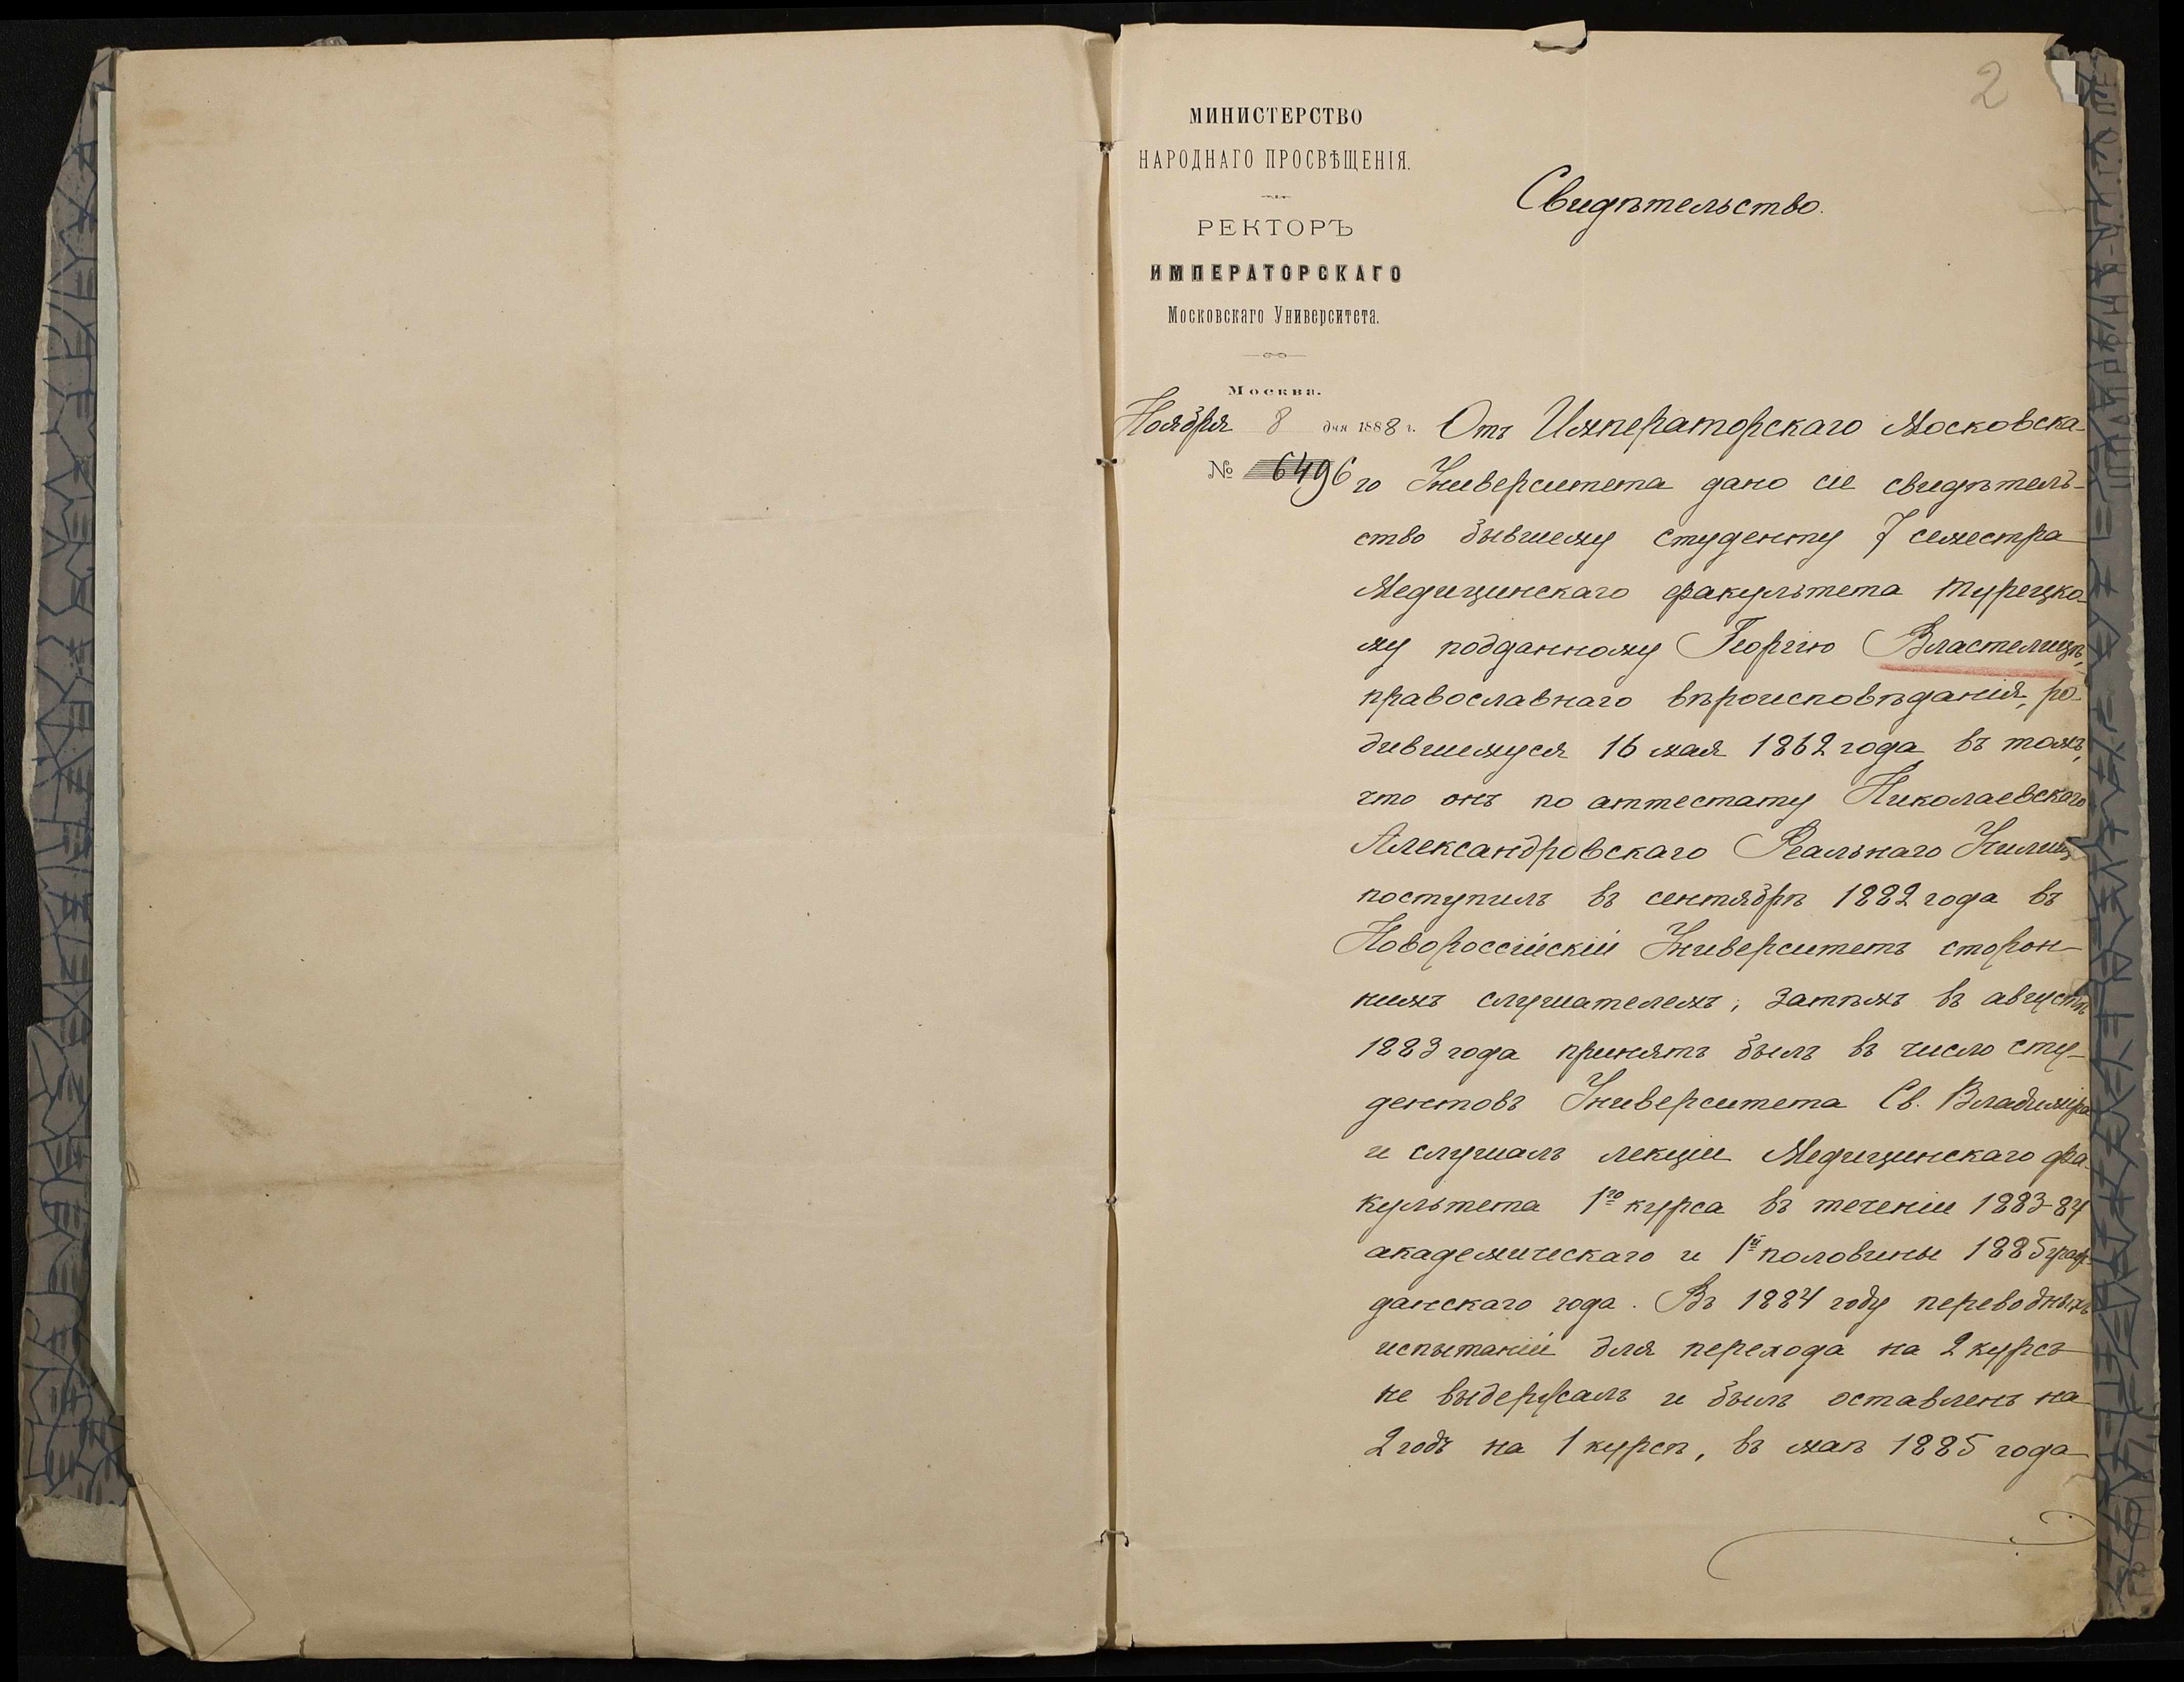 2
МИНИСТЕРСТВО
НАРОДНАГО ПРОСВѢЩЕНІЯ.
РЕКТОРЪ
ИМПЕРАТОРСКАГО
Московскаго Университета.
Москва.
Ноября 8 дня 1888 г.
№ 6496
Свидѣтельство.
Отъ Императорскаго Московска-
го Университета дано сіе свидѣтель-
ство бывшему студенту 7 семестра
Медицинскаго факультета турецко-
му подданному Георгію Властелицѣ,
православнаго вѣроисповѣданія, ро-
дившемуся 16 мая 1862 года въ томъ,
что онъ по аттестату Николаевскаго
Александровскаго Реальнаго Училищ
поступилъ въ сентябрѣ 1882 года въ
Новороссійскій Университетъ сторон-
нимъ слушателемъ, затѣмъ въ августѣ
1883 года принятъ былъ въ число сту-
дентовъ Университета Св. Владиміра
и слушалъ лекціи Медицинскаго фа-
культета 1го курса въ теченіи 1883-84
академическаго и 1й половины 1885 граж-
данскаго года. Въ 1884 году переводныхъ
испытаній для перехода на 2 курсъ
не выдержалъ и былъ оставленъ на
2 годъ на 1 курсѣ, въ маѣ 1885 года